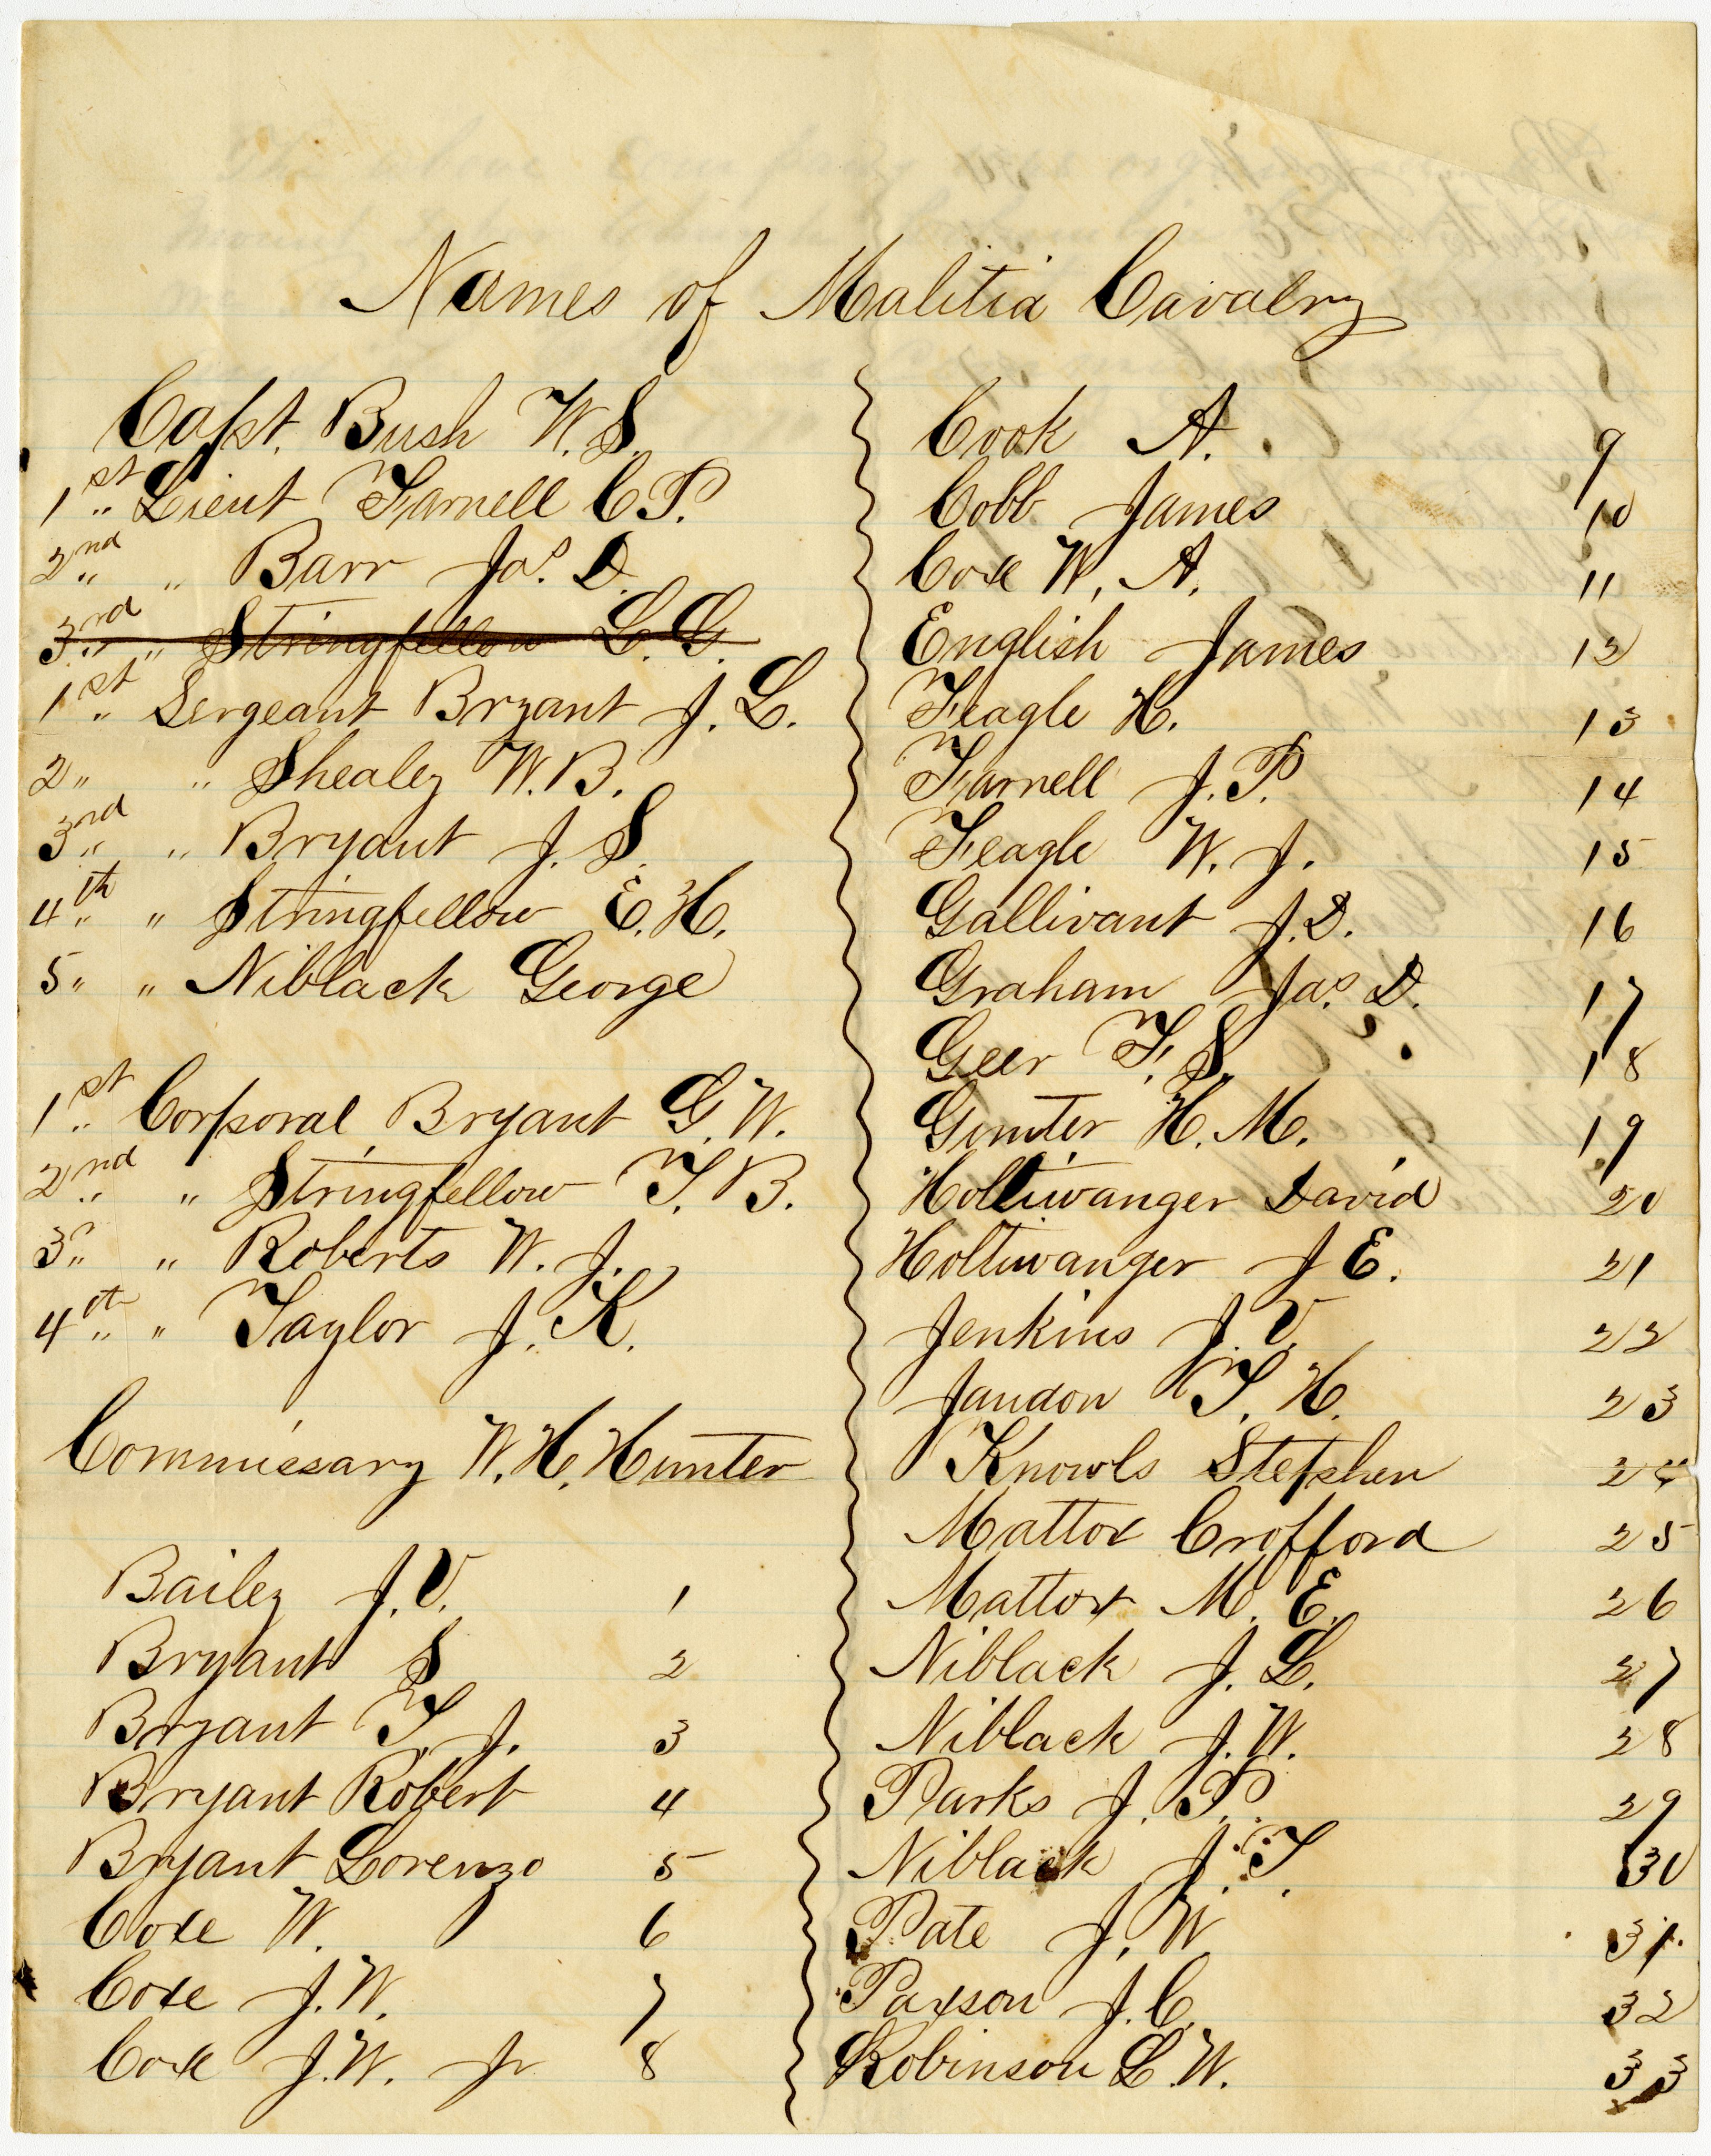 Names of Malitia Cavalry
Capt. Bush W. S.
1st Lieut Farnell C. P.
2nd " Barr Jas. D.
3rd " Stringfellow L. G.
1st Sergeant Bryant J. L.
2 " Shealey W. B.
3rd " Bryant J. S.
4th " Stringfellow E. H.
5 " Niblack George
1st Corporal Bryant G. W.
2nd " Stringfellow T. B.
3 " Roberts W. J.
4th " Taylor J. K.
Commissary W. H. Hunter
Bailey J. V. 1
Bryant S 2
Bryant T. J. 3
Bryant Robert 4
Bryant Lorenzo 5
Coxe W. 6
Coxe J. W. 7
Coxe J. W. Jr 8
Cook A. 9
Cobb James 10
Coxe W. A. 11
English James 12
Feagle H. 13
Farnell J. P. 14
Feagle W. J. 15
Gallivant J. D. 16
Graham Jas. D. 17
Geer F. S. 18
Gunter H. M. 19
Holtiwanger David 20
Holtiwanger J E. 21
Jenkins J. V. 22
Jaudon T. H. 23
Knowls Stephen 24
Mattox Crofford 25
Mattox M. E. 26
Niblack J. L. 27
Niblack J. W. 28
Parks J. P. 29
Niblack J. T. 30
Pate J. W 31.
Paxson J. C. 32
Robinson L. W. 33